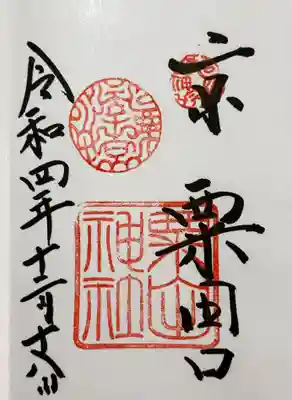 京 粟田口
粟田
神社
令和四年十二月十八日